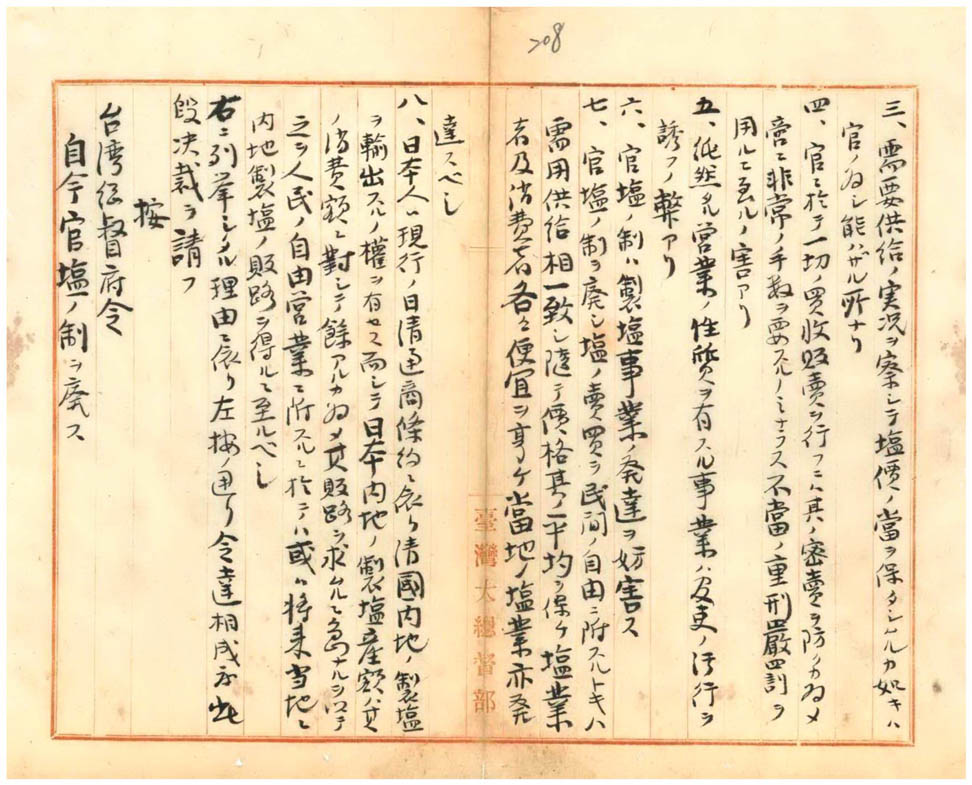 208
三、需要供給ノ実況ヲ察シテ塩價ノ當ヲ保タシムルカ如キハ
官ノ為シ能ハザル所ナリ
四、官ニ於テ一切ノ買收販賣ヲ行フニハ其ノ密賣ヲ防クカ為メ
啻ニ非常ノ手数ヲ要スルノミナラス不當ノ重刑嚴罰ヲ
用ルニ至ルノ害アリ
五、純然タル営業ノ性質ヲ有スル事業ハ吏ノ汚行ヲ
誘フノ弊アリ
六、官塩ノ制ハ製塩事業ノ発達ヲ妨害ス
七、官塩ノ制ヲ廃シ塩ノ賣買ヲ民間ノ自由ニ附スルトキハ
需用供給相一致シ隨テ價格其ノ平均ヲ保ケ塩業
者及消費者各々便宜ヲ享ケ當地ノ塩業亦発
達スベシ
八、日本人ハ現行ノ日清通商條約ニ依リ清國内地ノ製塩
ヲ輸出スルノ權ヲ有セス而シテ日本内地ノ製塩産額ハ其
ノ消費額ニ對シテ餘アルカ為メ其販路ヲ求ムルニ急ナルヲ以テ
之ヲ人民ノ自由営業ニ附スルニ於テハ或ハ将来当地ニ
内地製塩ノ販路ヲ得ルニ至ルベシ
右ニ列挙シタル理由ニ依リ左按ノ通リ令達相成度此
段決裁ヲ請フ
按
台湾総督府令
自今官塩ノ制ヲ廃ス
臺灣大總督部